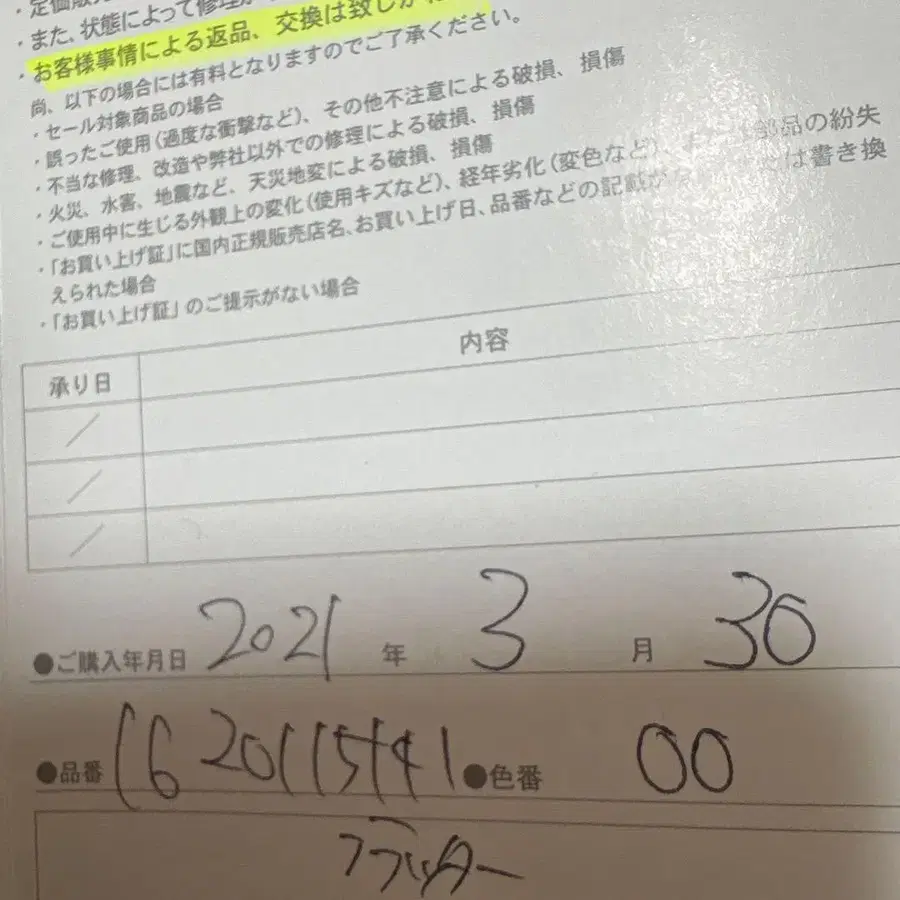 ・また、状態によって修理が
・お客様事情による返品、交換は致しか
尚、以下の場合には有料となりますのでご了承ください。
・セール対象商品の場合
・誤ったご使用（過度な衝撃など）、その他不注意による破損、損傷
・不当な修理、改造や弊社以外での修理による破損、損傷
・火災、水害、地震など、天災地変による破損、損傷
・ご使用中に生じる外観上の変化（使用キズなど）、経年劣化（変色など）、 部品の紛失
・「お買い上げ証」に国内正規販売店名、お買い上げ日、品番などの記載が は書き換
えられた場合
・「お買い上げ証」のご提示がない場合
承り日 内容
／
／
／
●ご購入年月日 2021 年 3 月 30
●品番 ●色番 00
フラッター